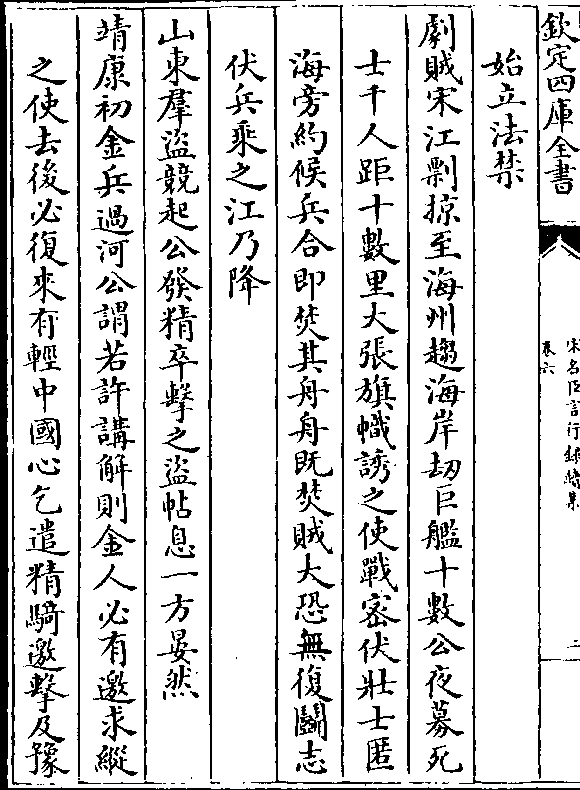 欽定四庫全書
宋名臣言行錄續集
卷六
二
始立法禁
劇賊宋江剽掠至海州趨海岸刼巨艦十數公夜募死
士千人距十數里大張旗幟誘之使戰密伏壯士匿
海旁約候兵合即焚其舟舟既焚賊大恐無復鬭志
伏兵乘之江乃降
山東羣盜競起公發精卒擊之盜帖息一方晏然
靖康初金兵過河公謂若許講解則金人必有邀求縱
之使去後必復來有輕中國心乞遣精騎邀擊及豫